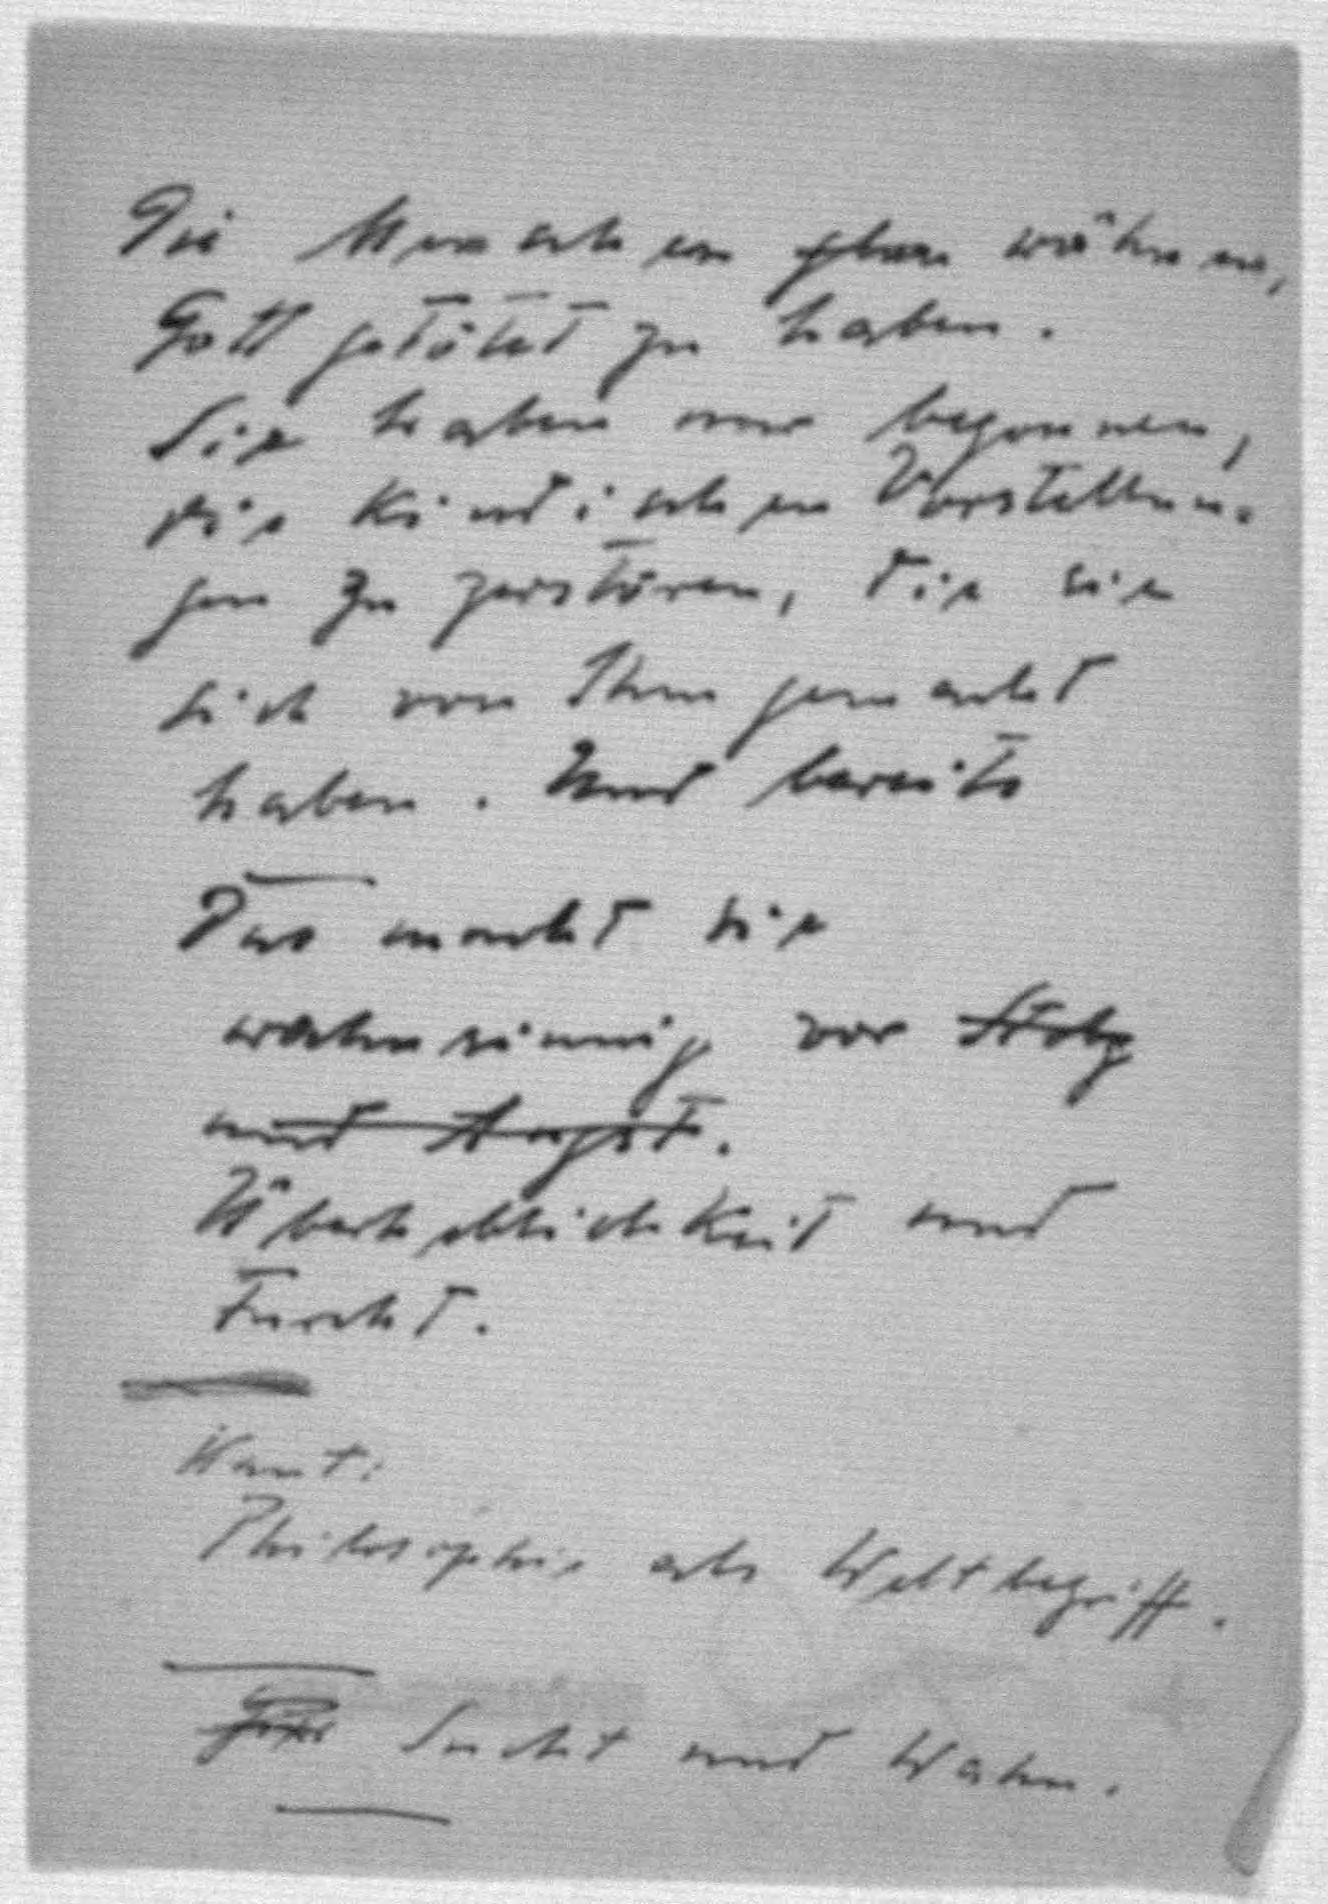 Die Menschen wähnen,
Gott getötet zu haben.
Sie haben nur begonnen,
die kindischen Vorstellun-
gen zu zerstören, die sie
sich von Ihm gemacht
haben. Und bereits
Das macht sie
wahnsinnig vor Stolz
und Angst.
Überheblichkeit und
Furcht.
Kant:
Philosophie als Weltbegriff.
Sucht und Wahn.